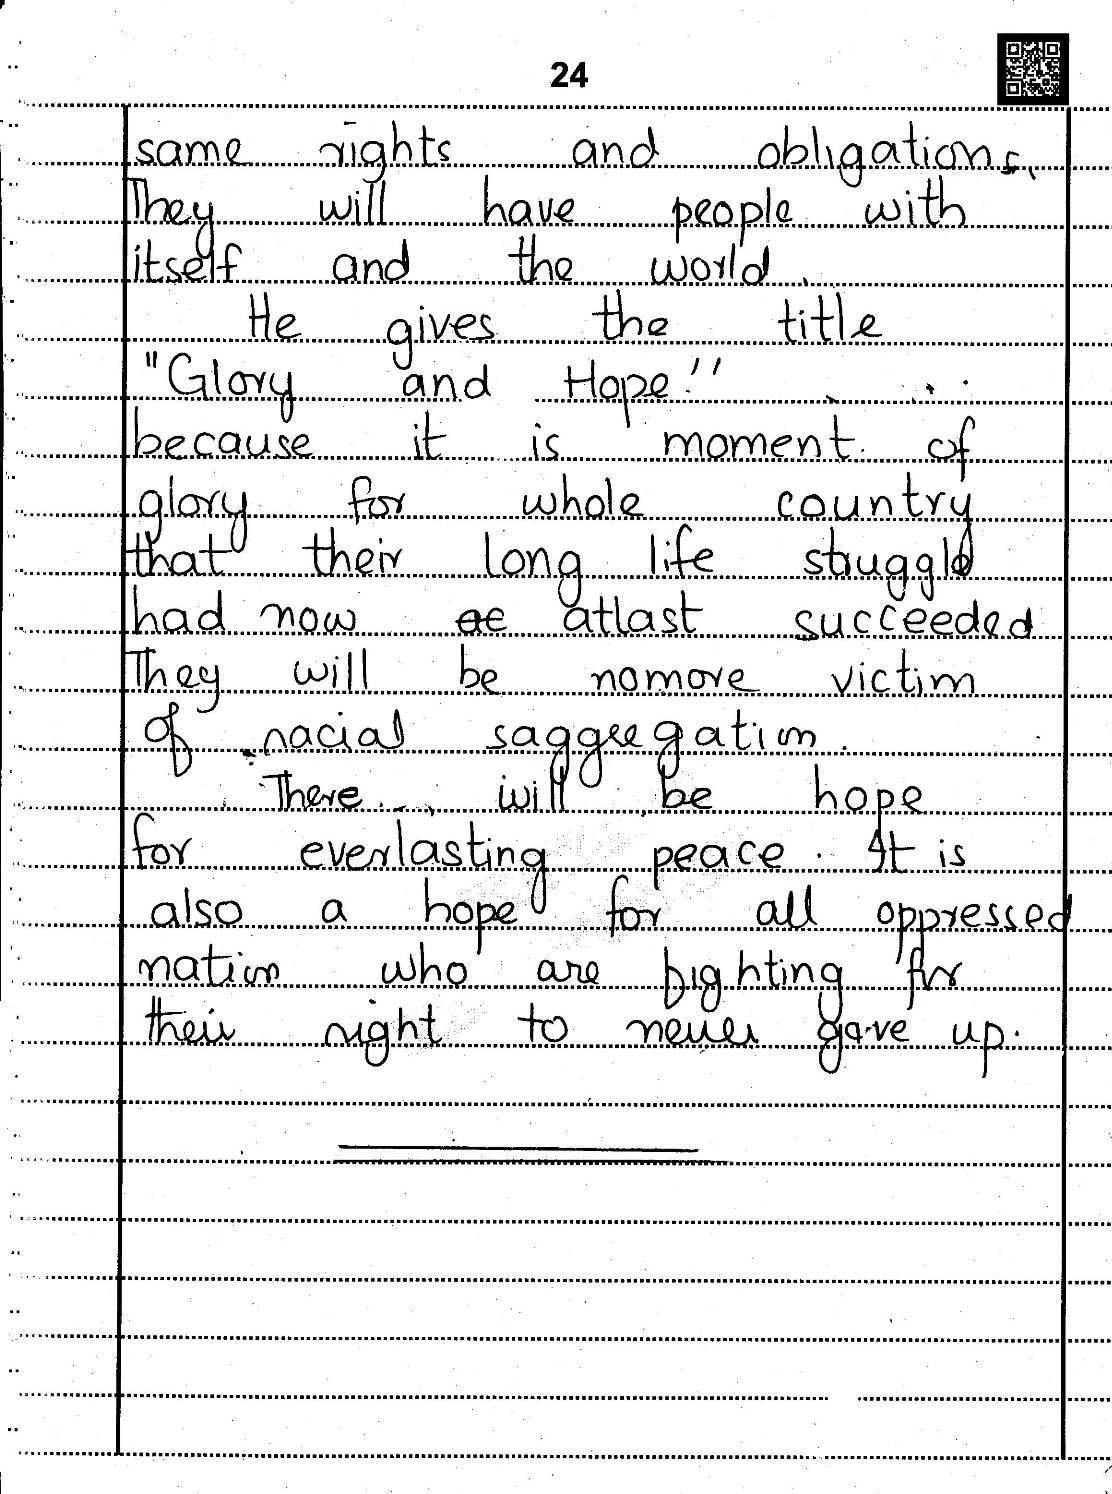 24
same rights and obligations.
They will have people with
itself and the world.
He gives the title
"Glory and Hope."
because it is moment of
glory for whole country
that their long life struggle
had now at atlast succeeded
They will be nomore victim
of racial saggregation.
There will be hope
for everlasting peace. It is
also a hope for all oppressed
nation who are fighting for
their right to never gave up.